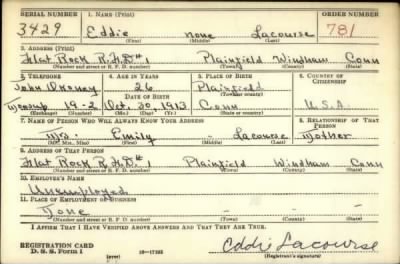 SERIAL NUMBER 1. NAME (Print) ORDER NUMBER
3429 Eddie none Lacourse 781
(First) (Middle) (Last)
2. ADDRESS (Print)
Flat Rock R.F.D# 1 Plainfield Windham Conn
(Number and street or R. F. D. number) (Town) (County) (State)
3. TELEPHONE 4. AGE IN YEARS 5. PLACE OF BIRTH 6. COUNTRY OF CITIZENSHIP
John 26 Plainfield
DATE OF BIRTH (Town or county)
19-2 Oct. 30, 1913 Conn U.S.A.
(Exchange) (Number) (Mo.) (Day) (Yr.) (State or country)
7. NAME OF PERSON WHO WILL ALWAYS KNOW YOUR ADDRESS 8. RELATIONSHIP OF THAT PERSON
Mrs. Emily - Lacourse Mother
(Mr., Mrs., Miss) (First) (Middle) (Last)
9. ADDRESS OF THAT PERSON
Flat Rock R.F.D# 1 Plainfield Windham Conn
(Number and street or R. F. D. number) (Town) (County) (State)
10. EMPLOYER'S NAME
Unemployed
11. PLACE OF EMPLOYMENT OR BUSINESS
(Number and street or R. F. D. number) (Town) (County) (State)
I AFFIRM THAT I HAVE VERIFIED ABOVE ANSWERS AND THAT THEY ARE TRUE.
REGISTRATION CARD
D. S. S. Form 1 (over) Eddie Lacourse
(Registrant's signature)